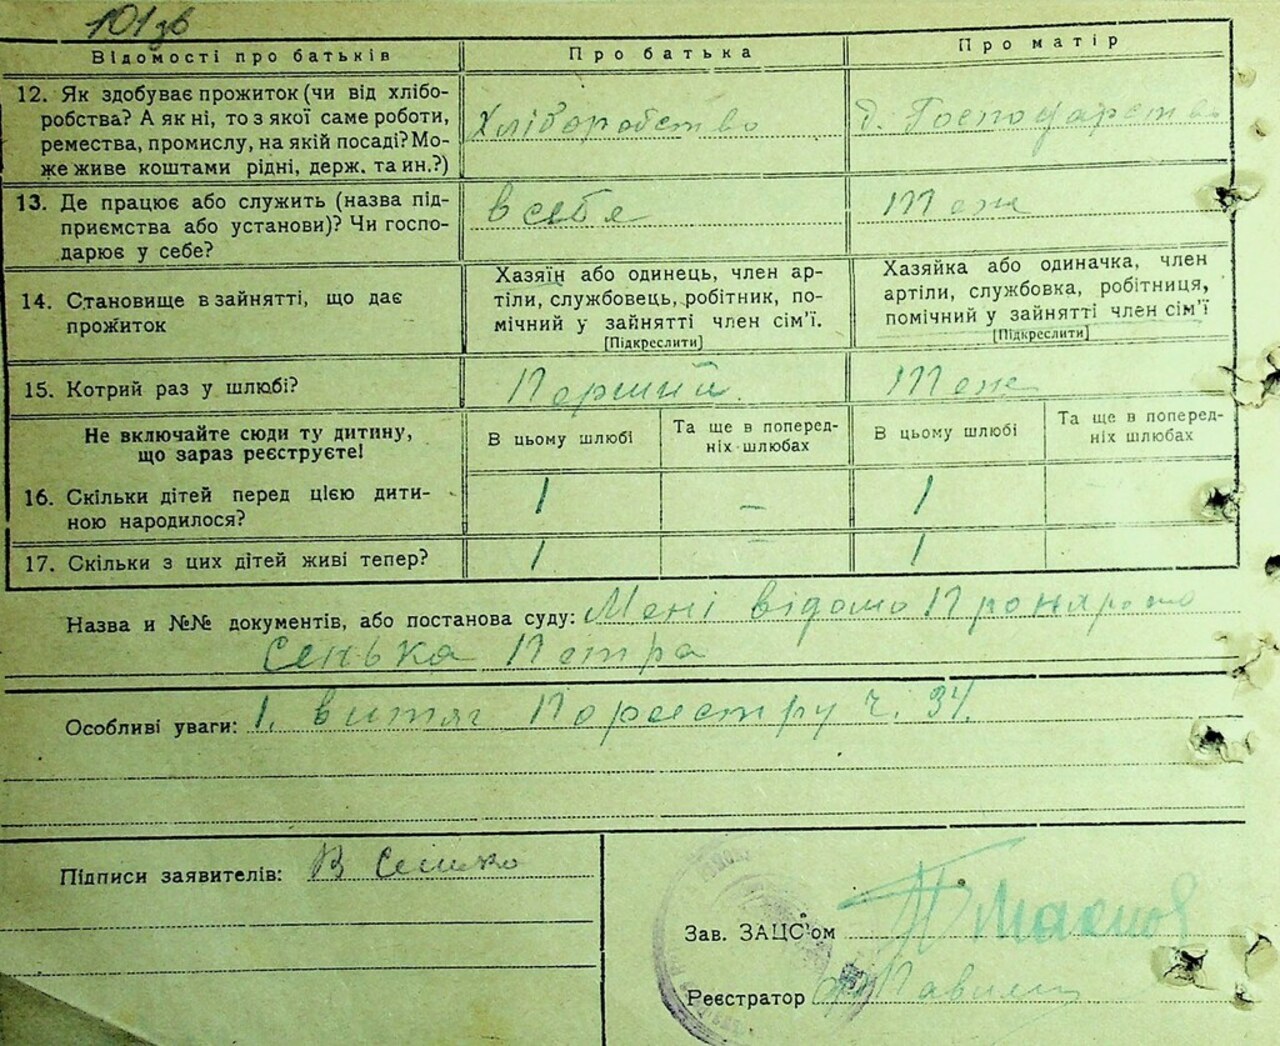 101 зв
Відомості про батьків
Про батька
Про матір
12. Як здобуває прожиток (чи від хлібо-
робства? А як ні, то з якої саме роботи,
ремества, промислу, на якій посаді? Мо-
же живе коштами рідні, держ. та ин.?)
Хліборобство
д. Господарство
13. Де працює або служить (назва під-
приємства або установи)? Чи госпо-
дарює у себе?
в себе
Теж
14. Становище в зайнятті, що дає
прожиток
Хазяїн або одинець, член ар-
тіли, службовець, робітник, по-
мічний у зайнятті член сім'ї.
[Підкреслити]
Хазяйка або одиначка, член
артіли, службовка, робітниця,
помічний у зайнятті член сім'ї
[Підкреслити]
15. Котрий раз у шлюбі?
Перший
Теж
Не включайте сюди ту дитину,
що зараз реєструєте!
В цьому шлюбі
Та ще в поперед-
ніх шлюбах
В цьому шлюбі
Та ще в поперед-
ніх шлюбах
16. Скільки дітей перед цією дити-
ною народилося?
1
–
1
17. Скільки з цих дітей живі тепер?
1
–
1
Назва и №№ документів, або постанова суду: Мені відомо
Сенька Петра
Особливі уваги: 1. витяг Пореєстру ч. 34.
Підписи заявителів: В Сенько
Зав. ЗАЦС'ом
Реєстратор